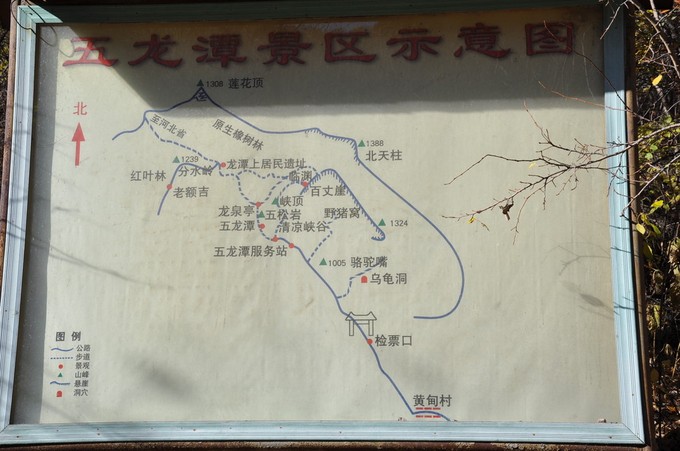 五龙潭景区示意图
北
1308 莲花顶
至河北省
原生橡树林
1388
北天柱
1239
分水岭
龙潭上居民遗址
红叶林
老额吉
临渊
百丈崖
峡顶
龙泉亭
五松岩
野猪窝
1324
五龙潭
清凉峡谷
五龙潭服务站
1005 骆驼嘴
乌龟洞
检票口
黄甸村
图 例
公路
步道
景观
山峰
悬崖
洞穴